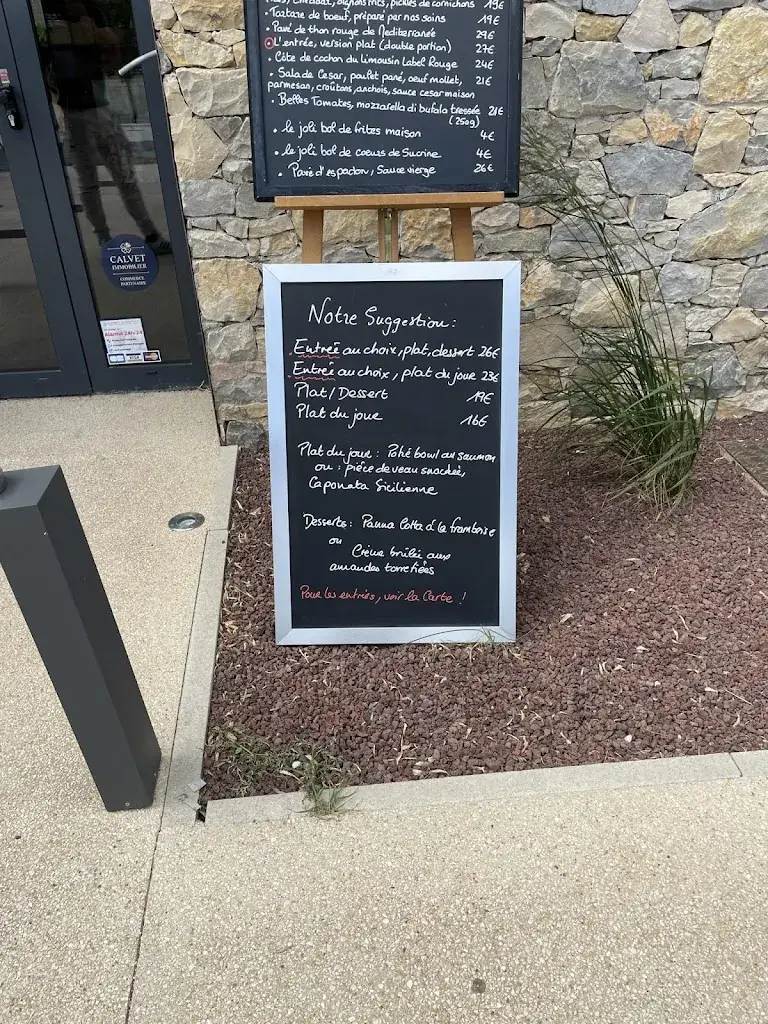 oignons frits, pickles de cornichons 19€
• Tartare de boeuf, préparé par nos soins 19€
• Pavé de thon rouge de Mediterranée 29€
• L'entrée, version plat (double portion) 27€
• Côte de cochon du Limousin Label Rouge 24€
• Salade Cesar, poulet pané, oeuf mollet, 21€
parmesan, croûtons, anchois, sauce cesar maison
• Belles Tomates, mozzarella di bufala tressée 21€
(250g)
• le joli bol de frites maison 4€
• le joli bol de coeurs de Sucrine 4€
• Pavé d'espadon, Sauce vierge 26€
CALVET
IMMOBILIER
COMMERCE
PARTENAIRE
Alarme 24h/24
VISA
Notre Suggestion :
Entrée au choix, plat, dessert 26€
Entrée au choix, plat du jour 23€
Plat/Dessert 19€
Plat du jour 16€
Plat du jour : Poké bowl au saumon
ou : pièce de veau snackée,
Caponata Sicilienne
Desserts : Panna Cotta à la framboise
ou
Crème brûlée aux
amandes torrefiées
Pour les entrées, voir la Carte !